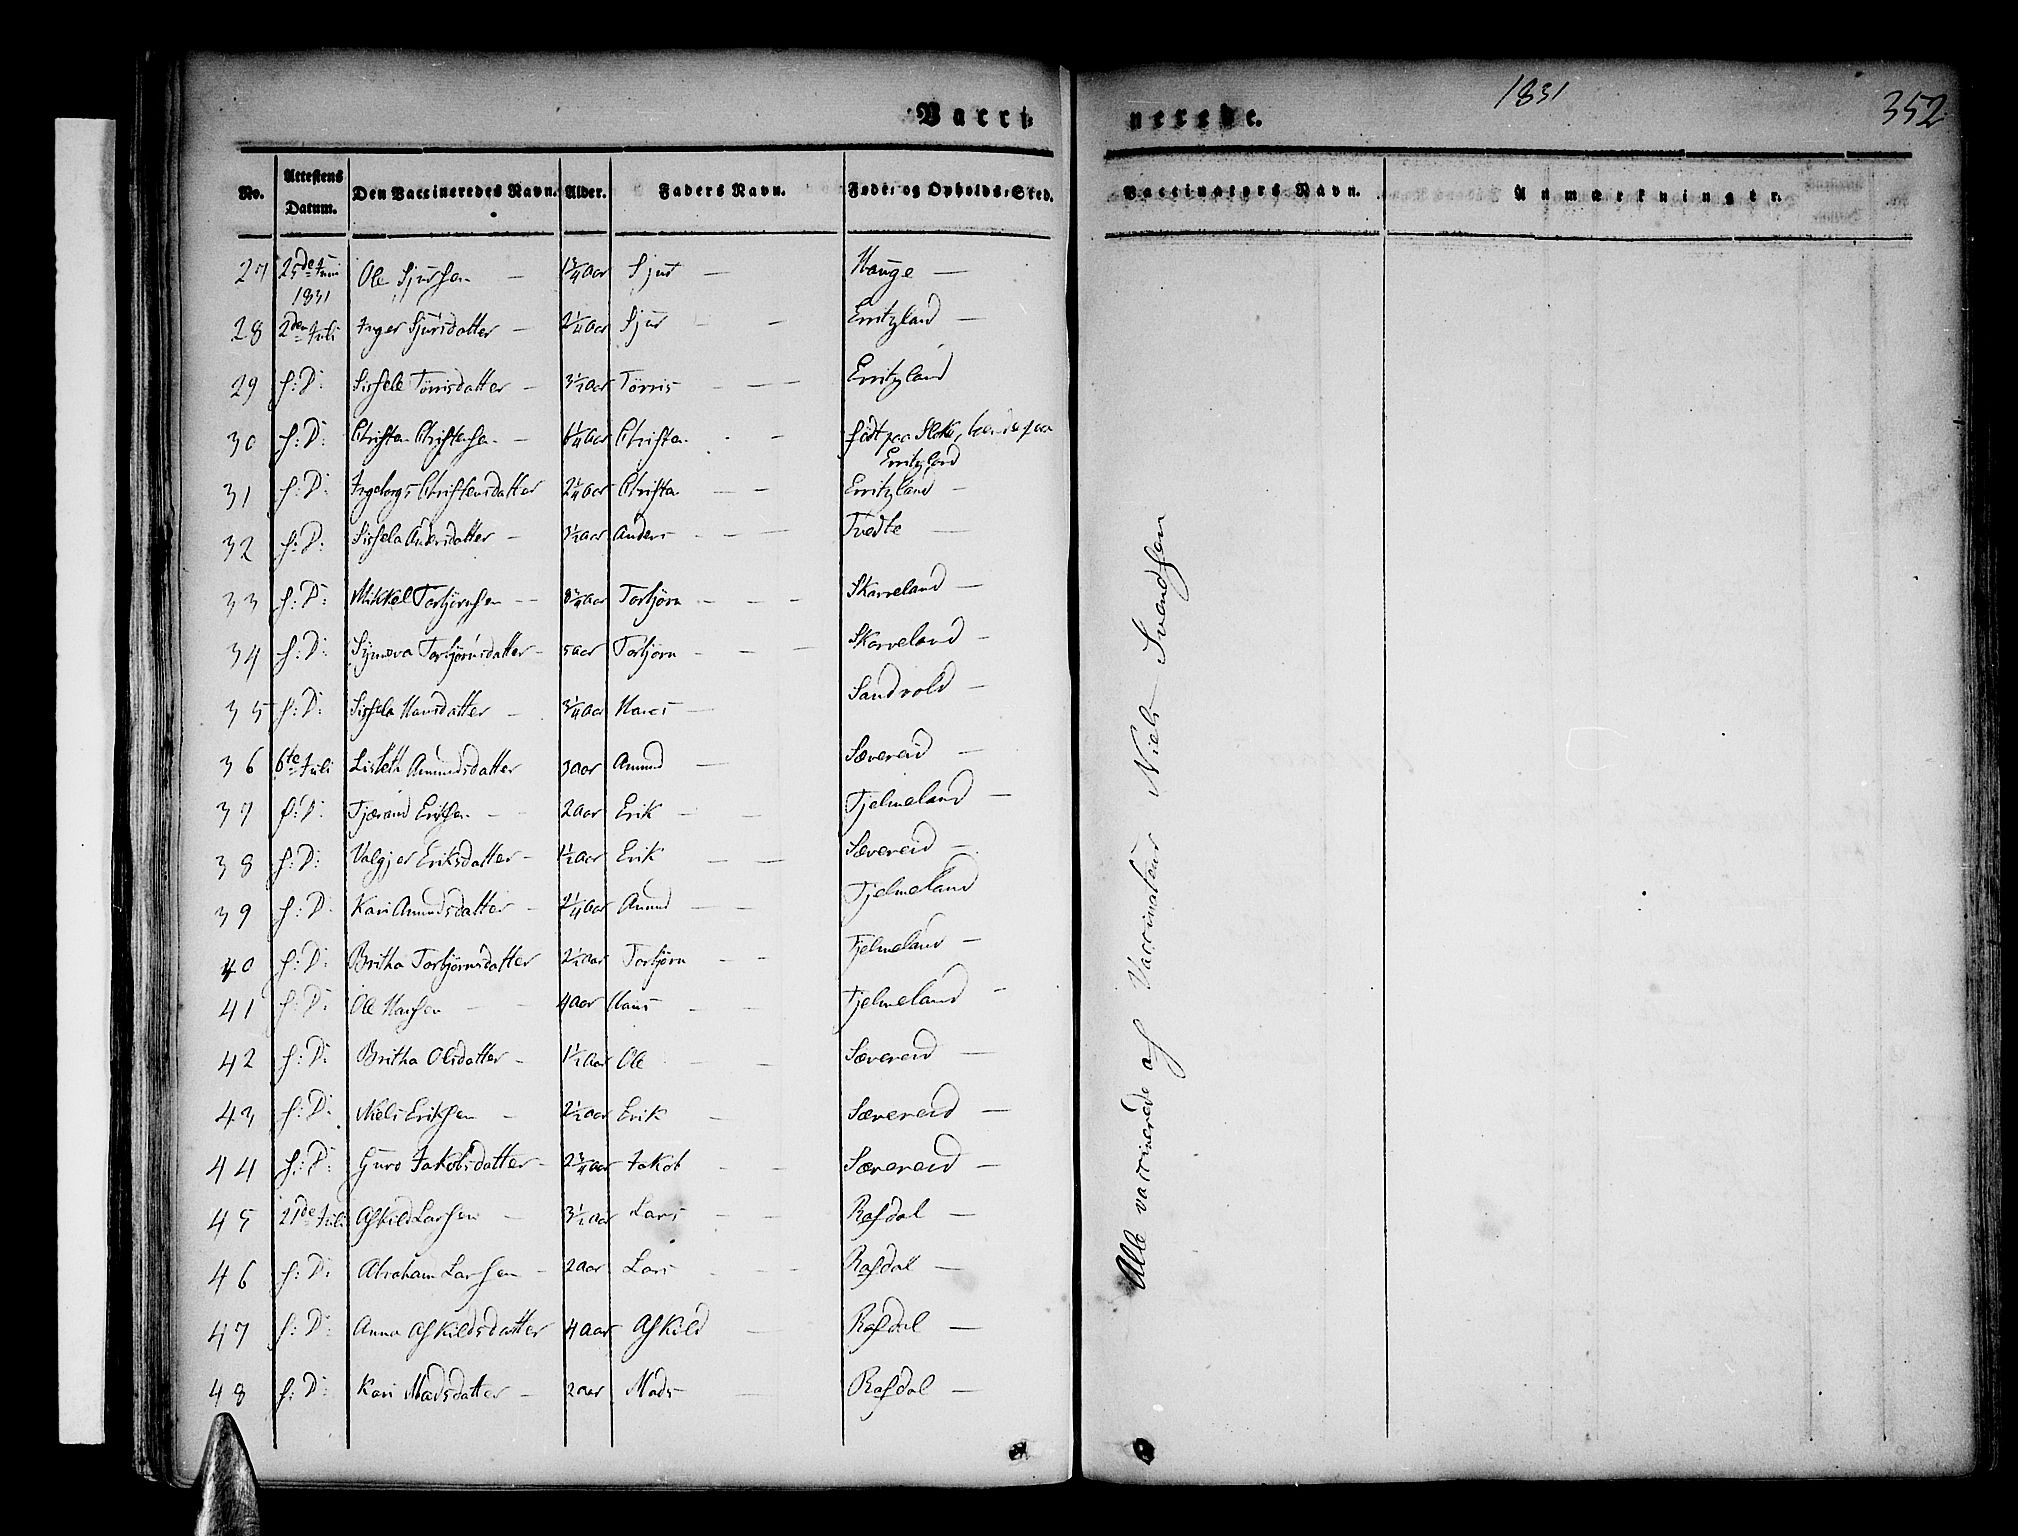 Vacci
nerede.
1831
352
No. Attestens Datum. Den Vaccineredes Navn. Alder. Faders Navn. Føde- og Opholds-Sted. Vaccinators Navn. Anmærkninger.
27 25de Juni 1831 Ole Sjursen — 1 3/4 aar Sjur — Hauge —
28 2den Juli Inger Sjursdatter — 2 1/4 aar Sjur — — Erritzland —
29 s: D: Sissele Tørrisdatter — 3 1/2 aar Tørris — — — Erritzland
30 s: D: Christen Christensen — 6 1/4 aar Christen — — født paa Sloke, boende paa
Erritzland
31 s: D: Ingeborg Christensdatter 2 1/4 aar Christen — — Erritzland —
32 s: D: Sissela Andersdatter — 3 1/2 aar Anders — — — Tvedte —
33 s: D: Mikkel Torbjørnsen — — 8 3/4 aar Torbjørn — — — Skarveland —
34 s: D: Synneva Torbjørnsdatter — 5 aar Torbjørn — — — Skarveland —
35 s: D: Sissela Hansdatter — 3 1/4 aar Hans — Sandvold —
36 6te Juli Lisbeth Amundsdatter 3 aar Amund — — Sævereid —
37 s: D: Tjærand Eriksen — — 2 aar Erik — — Tjelmeland —
38 s: D: Valgjer Eriksdatter — 1 1/2 aar Erik — — Sævereid —
39 s: D: Kari Amundsdatter — 2 1/4 aar Amund — — Tjelmeland
40 s: D: Britha Torbjørnsdatter 2 1/2 aar Torbjørn — — Tjelmeland —
41 s: D: Ole Hansen — — 4 aar Hans — — Tjelmeland —
42 s: D: Britha Olsdatter — 1 1/2 aar Ole — — Sævereid —
43 s: D: Niels Eriksen — 2 1/2 aar Erik — — Sævereid —
44 s: D: Guro Jakobsdatter — 2 3/4 aar Jakob — — Sævereid —
45 21de Juli Askild Larsen — 3 1/2 aar Lars — — Rafdal —
46 s: D: Abraham Larsen — 2 aar Lars — — Rafdal —
47 s: D: Anna Askildsdatter 4 aar Askild — Rafdal —
48 s: D: Kari Madsdatter — 2 aar Mads — Rafdal —
Alle vaccinerede af Vaccinateur Niels Svendsen